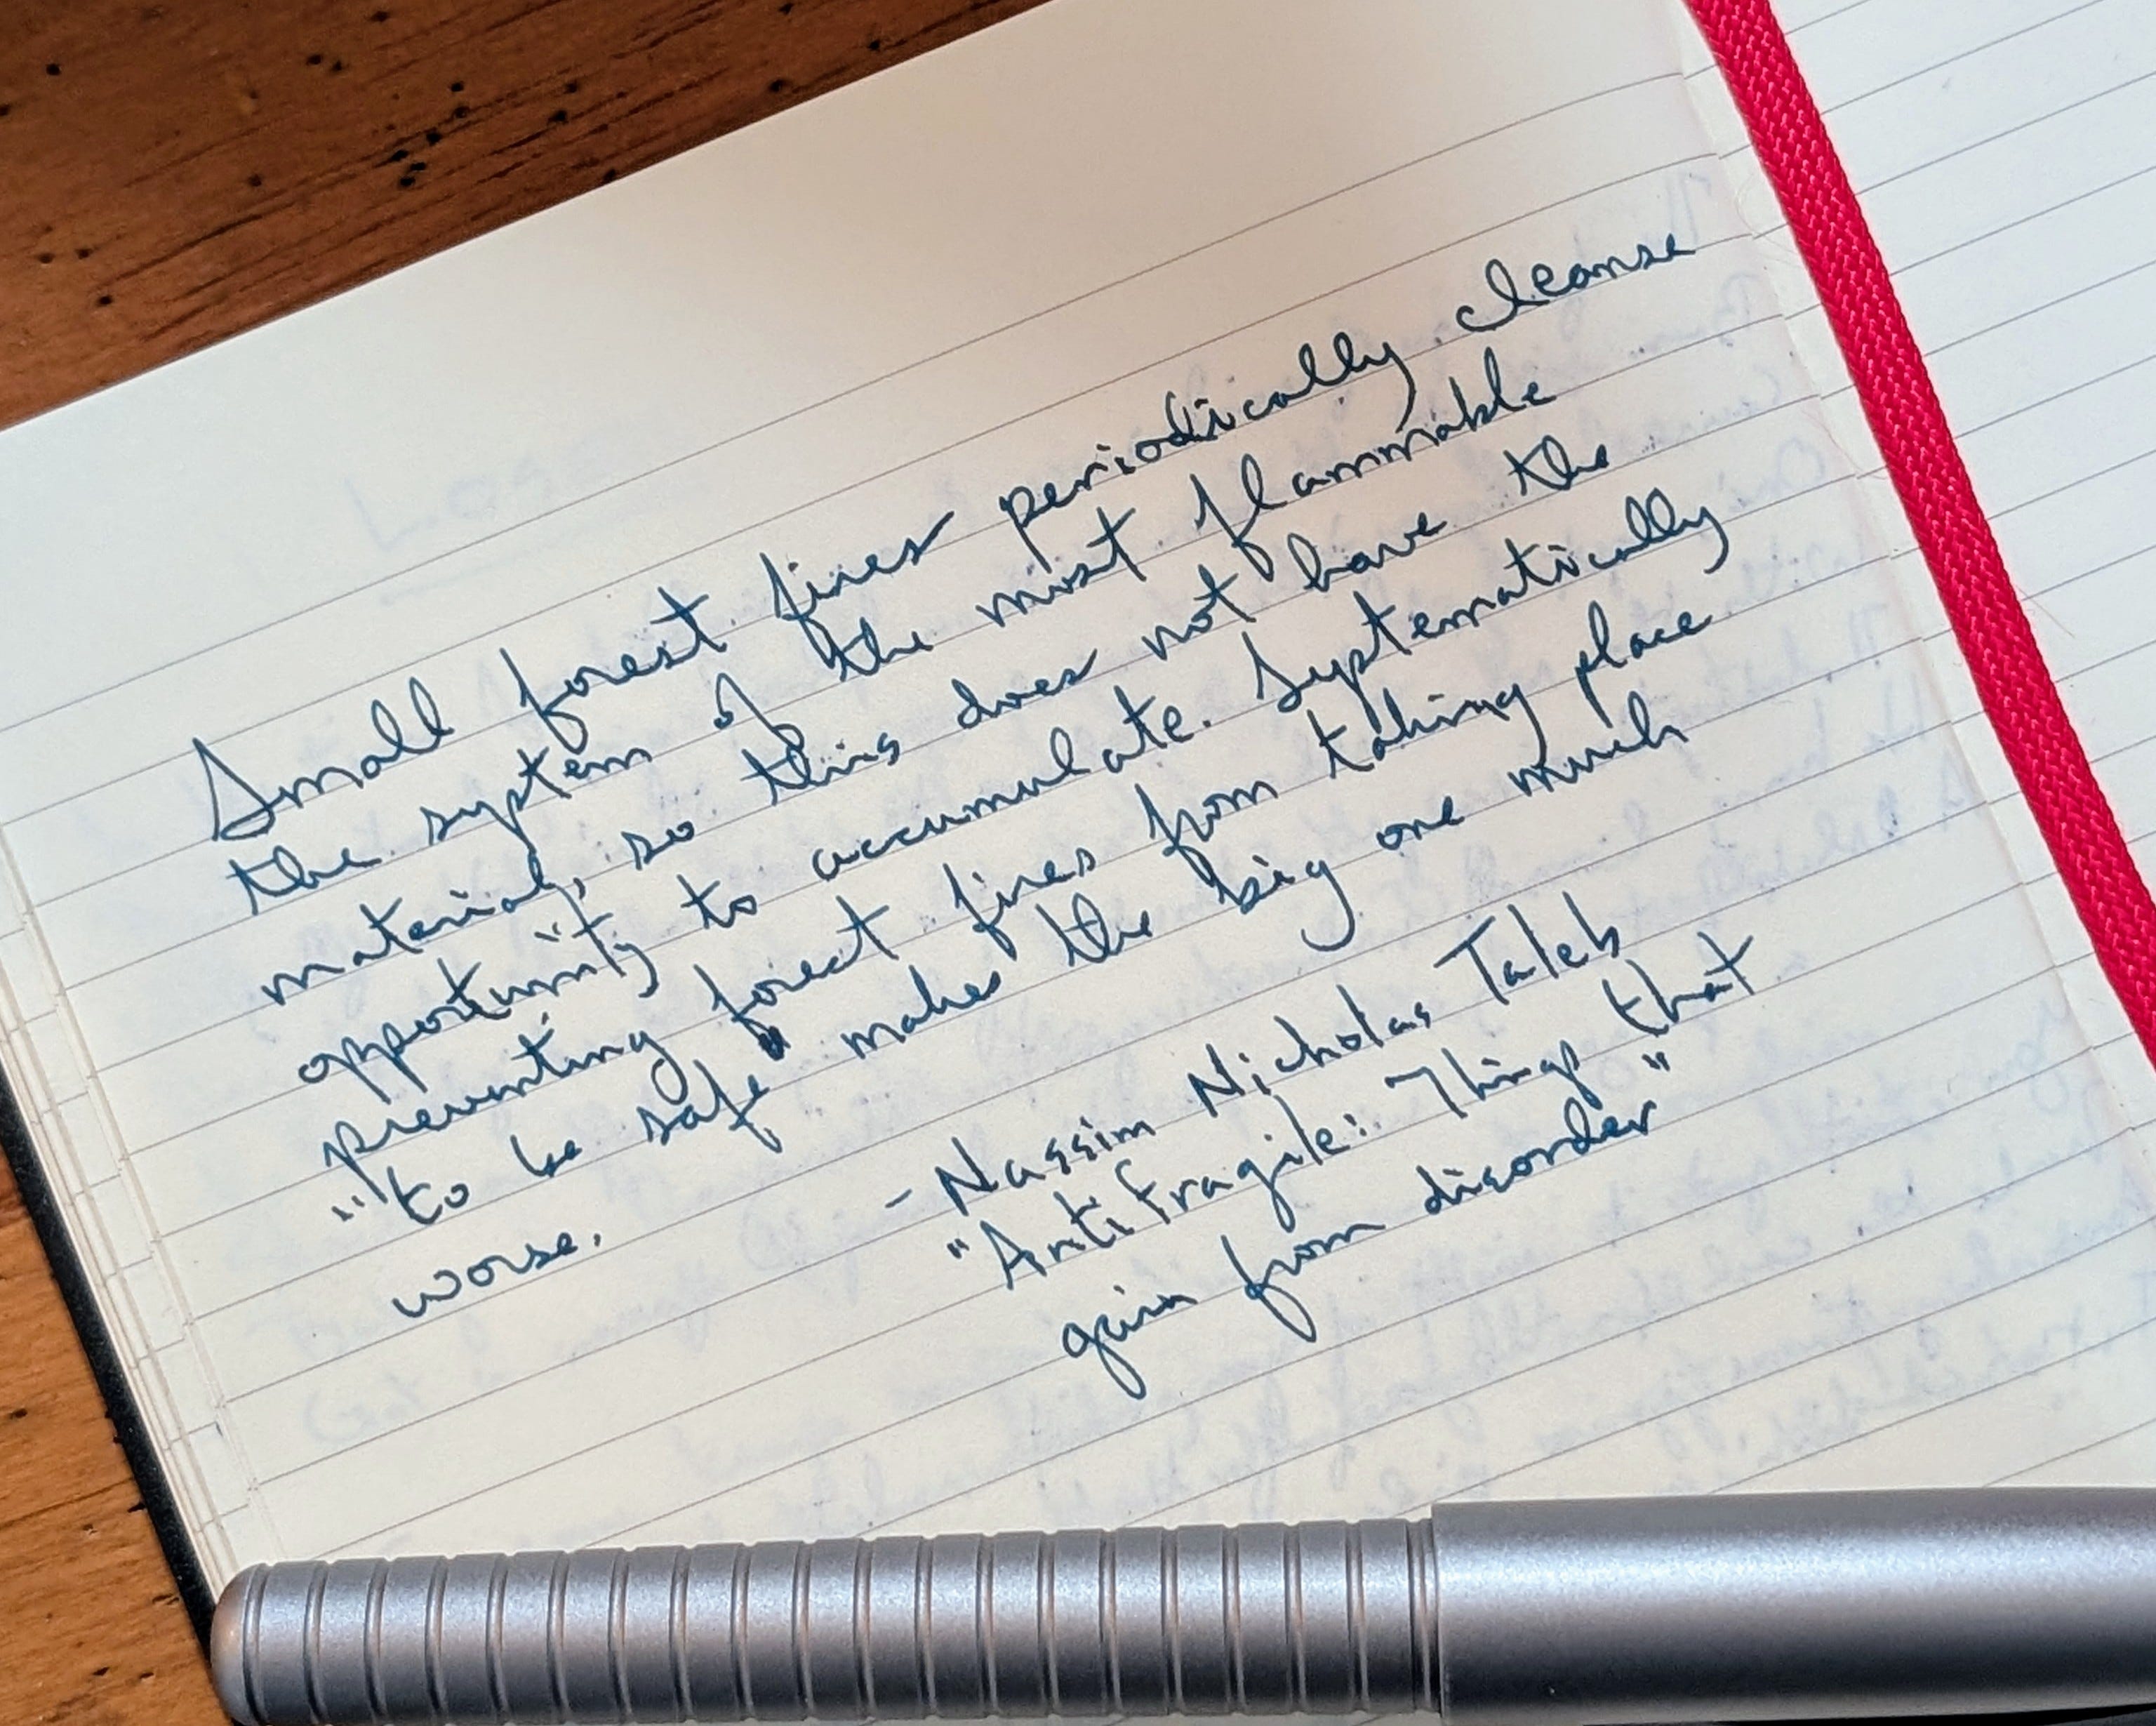 Small forest fires periodically cleanse
the system of the most flammable
material, so this does not have the
opportunity to accumulate. Systematically
preventing forest fires from taking place
"to be safe" makes the big one much
worse.
- Nassim Nicholas Taleb
"Antifragile: Things that
gain from disorder"